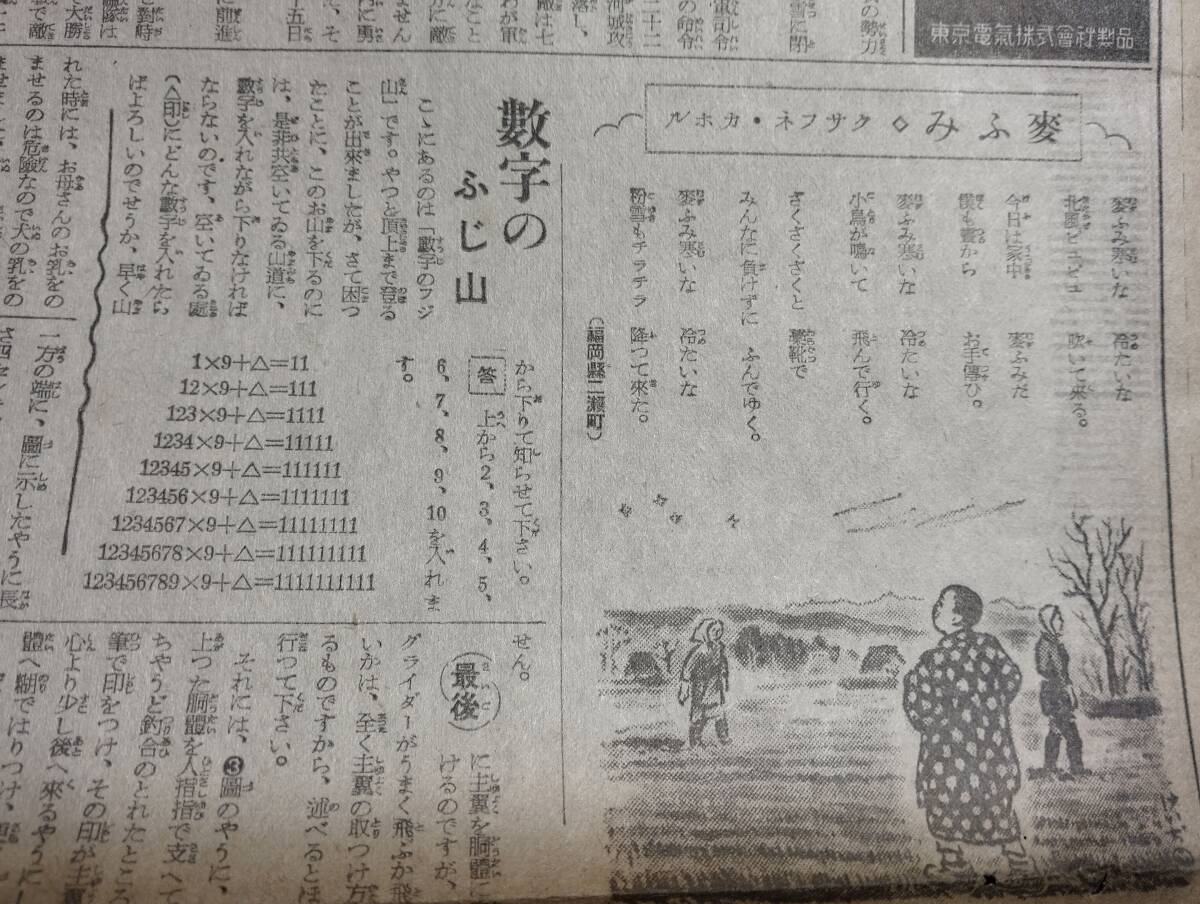 東京電氣株式會社製品
の勢力
雪に閉
の命令
二十二
河城攻
落し、
敵は七
わが軍
なこと
方に敵
ません
に勇
十五日
に前進
麥ふみ◇クサフネ・カホル
麥ふみ寒いな 冷たいな
北風ピユピユ 吹いて來る。
今日は家中 麥ふみだ
僕も晝から お手傳ひ。
麥ふみ寒いな 冷たいな
小鳥が鳴いて 飛んで行く。
さくさくさくと 藁靴で
みんなに負けずに ふんでゆく。
麥ふみ寒いな 冷たいな
粉雪もチラチラ 降つて來た。
(福岡縣二瀬町)
數字の
ふじ山
こゝにあるのは「數字のフジ
山」です。やつと頂上まで登る
ことが出來ましたが、さて困つ
たことに、このお山を下るのに
は、是非共空いてゐる山道に、
數字を入れながら下りなければ
ならないのです。空いてゐる處
(△印)にどんな數字を入れたら
ばよろしいのでせうか、早く山
から下りて知らせて下さい。
答 上から2、3、4、5、
6、7、8、9、10を入れま
す。
1×9+△=11
12×9+△=111
123×9+△=1111
1234×9+△=11111
12345×9+△=111111
123456×9+△=1111111
1234567×9+△=11111111
12345678×9+△=111111111
123456789×9+△=1111111111
れた時には、お母さんのお乳をの
ませるのは危險なので犬の乳をの
一方の端に、圖に示したやうに長
せん。
最後
に主翼を胴體に
けるのですが、
グライダーがうまく飛ふか飛
いかは、全く主翼の取つけ方
るものですから、述べるとほ
行つて下さい。
それには、❸圖のやうに、
上つた胴體を人指指で支へて
ちやうど釣合のとれたところ
筆で印をつけ、その印が主翼
心より少し後へ來るやうにし
體へ糊ではりつけ、